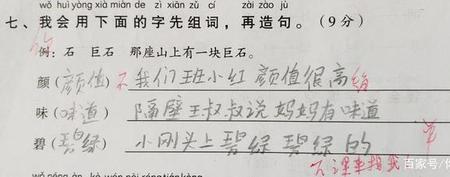 wǒ huì yòng xià miàn de zì xiān zǔ cí zài zào jù
七、我会用下面的字先组词，再造句。（9分）
例：石 巨石 那座山上有一块巨石。
颜(颜值) 我们班小红颜值很高
味(味道) 隔壁王叔叔说妈妈有味道
碧(碧绿) 小刚头上碧绿碧绿的
下课来找我
百家号/